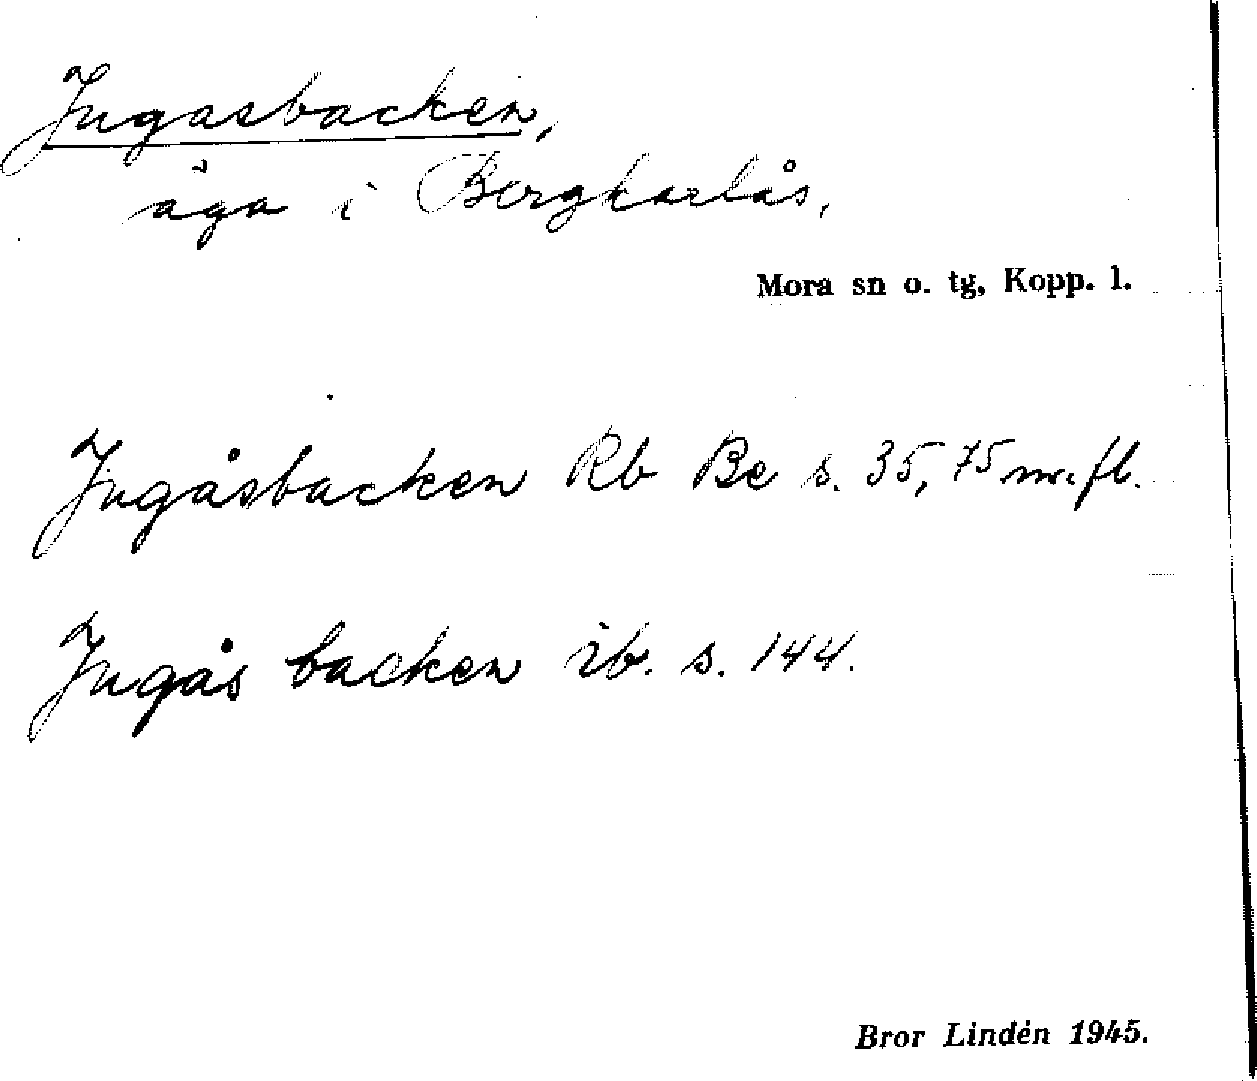 Jugasbacken,
äga i Bergkarlås,
Mora sn o. tg, Kopp. l.
Jugåsbacken Rb Be s. 35, 75 m. fl.
Jugås backen ib. s. 144.
Bror Lindén 1945.